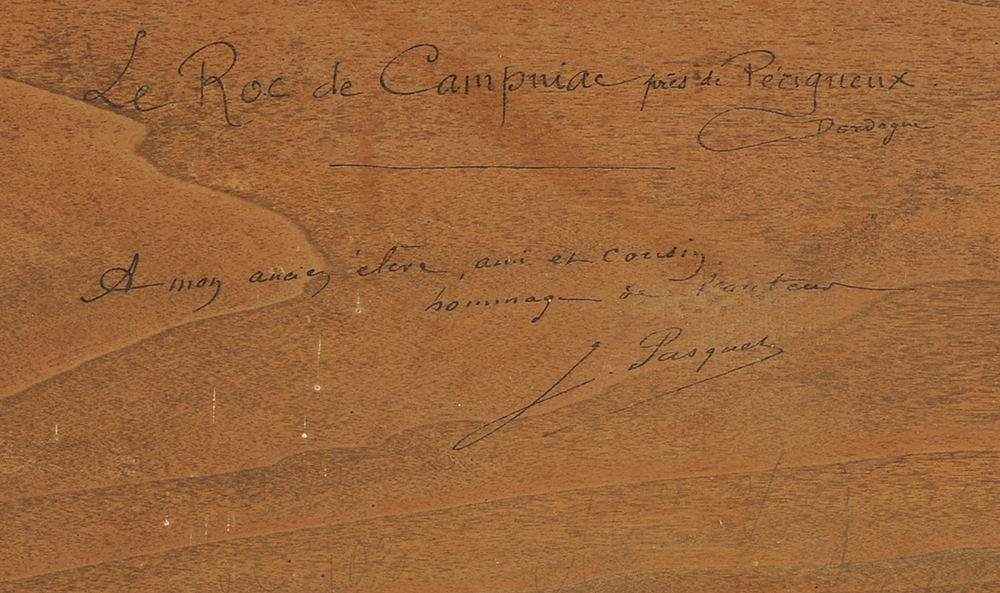 Le Roc de Campniac près de Périgueux.
Dordogne
A mon ancien élève, ami et cousin
hommage de l'auteur
J. Pasquet